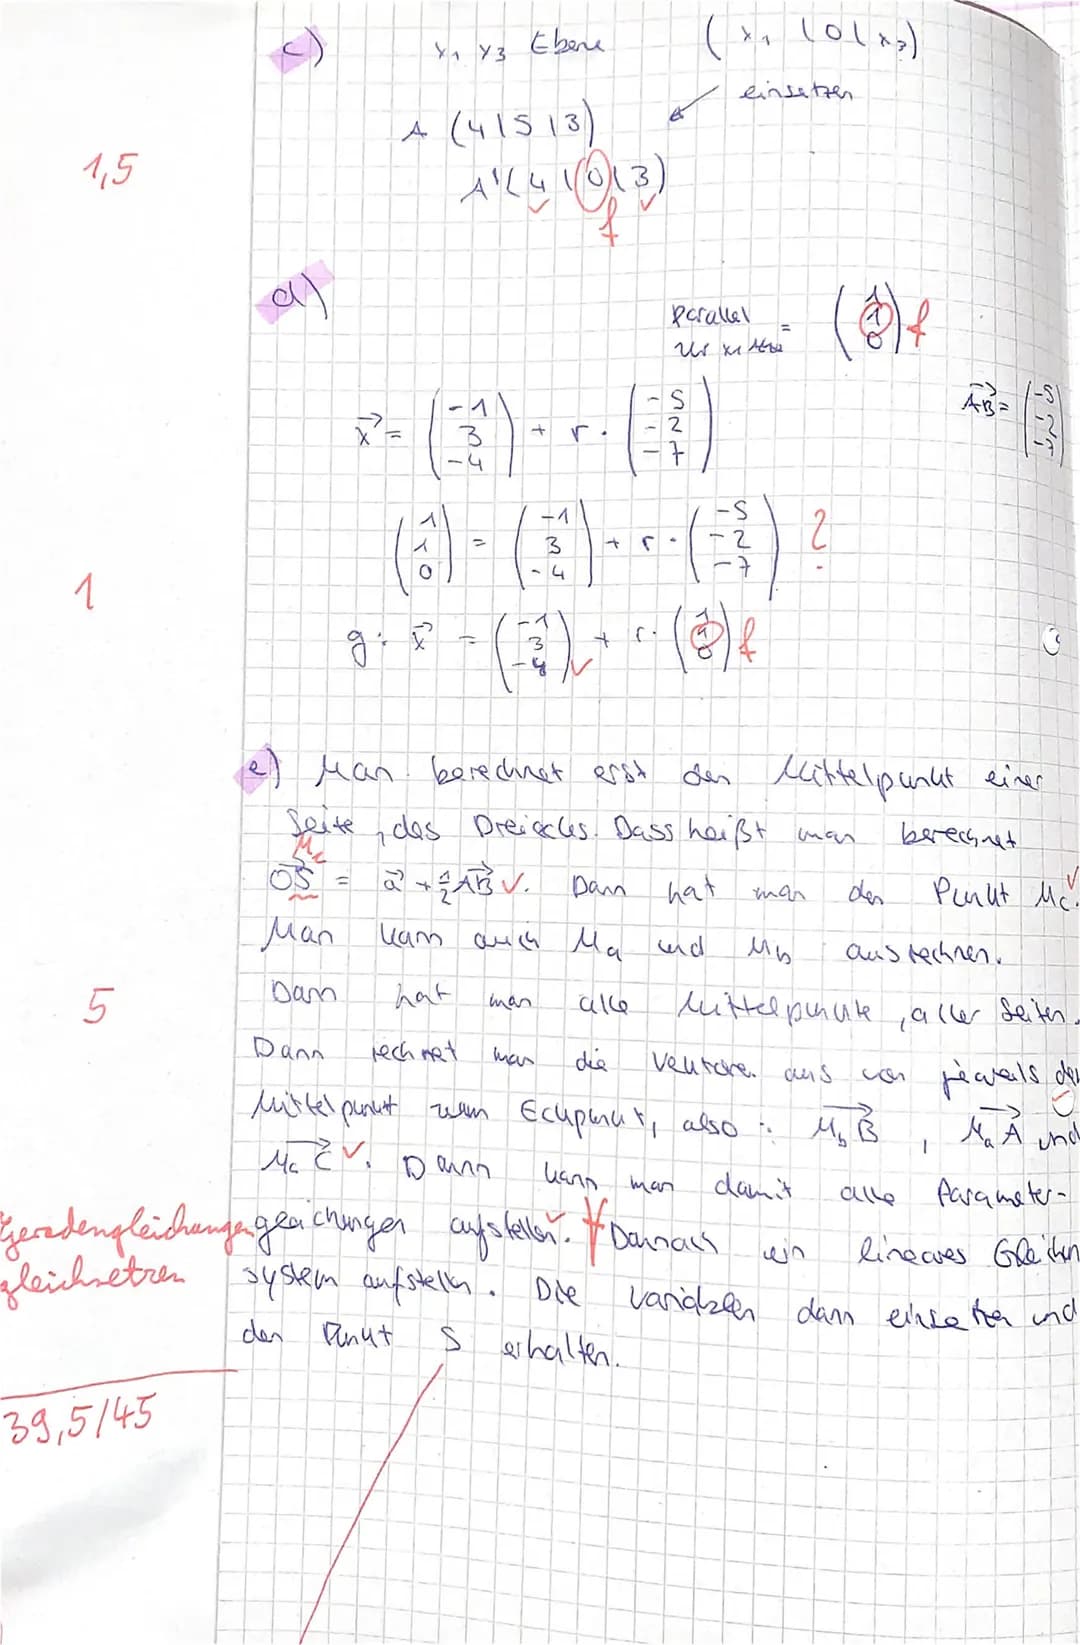 c) x₁ x₃ Ebene (x₁ | 0 | x₃)
einsetzen
A (4 | 5 | 3)
1,5
A' (4 | 0 | 3)
f
d)
Parallel
zur x₁ = (1 1 0) f
x⃗ = (-1 3 -4) + r · (-5 -2 -7) AB⃗ = (-5 -2 -7)
(1 1 0) = (-1 3 -4) + r · (-5 -2 -7) ?
1
g: x⃗ = (-1 3 -4) + r · (1 1 0) f
e) Man berechnet erst den Mittelpunkt einer
Seite, des Dreiecks. Dass heißt man berechnet
Mc
OS⃗ = a⃗ + ½ AB⃗ ✓. Dann hat man den Punkt Mc. ✓
Man kann auch Ma und Mb ausrechnen.
5 Dann hat man alle Mittelpunkte, aller Seiten.
Dann rechnet man die Vektoren aus von jeweils den
Mittelpunkt zum Eckpunkt, also: MbB⃗, MaA⃗ und
McC⃗ ✓. Dann kann man damit alle Parameter-
Geradengleichungen gleichungen aufstellen. ✓ Danach ein lineares Gleichen
gleichsetzen system aufstelln. Die Variablen dann einsetzen und
den Punkt S erhalten.
39,5/45